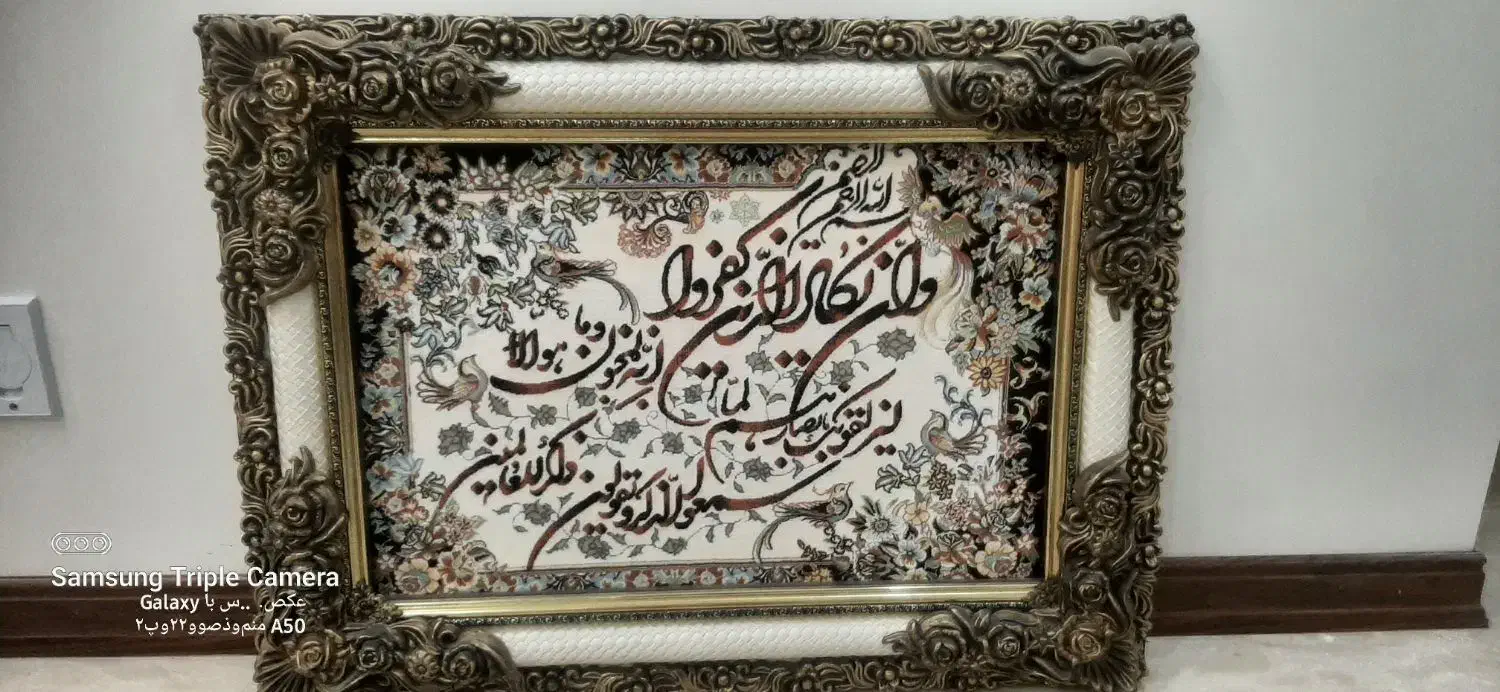 بسم الله الرحمن الرحیم
وان یکاد الذین کفروا
لیزلقونک بابصارهم لما
سمعوا الذکر و یقولون
انه لمجنون وما هو الا
ذکر للعالمین
Samsung Triple Camera
عکص. ..س با Galaxy
A50 منم‌وذصوو۲۲وپ۲